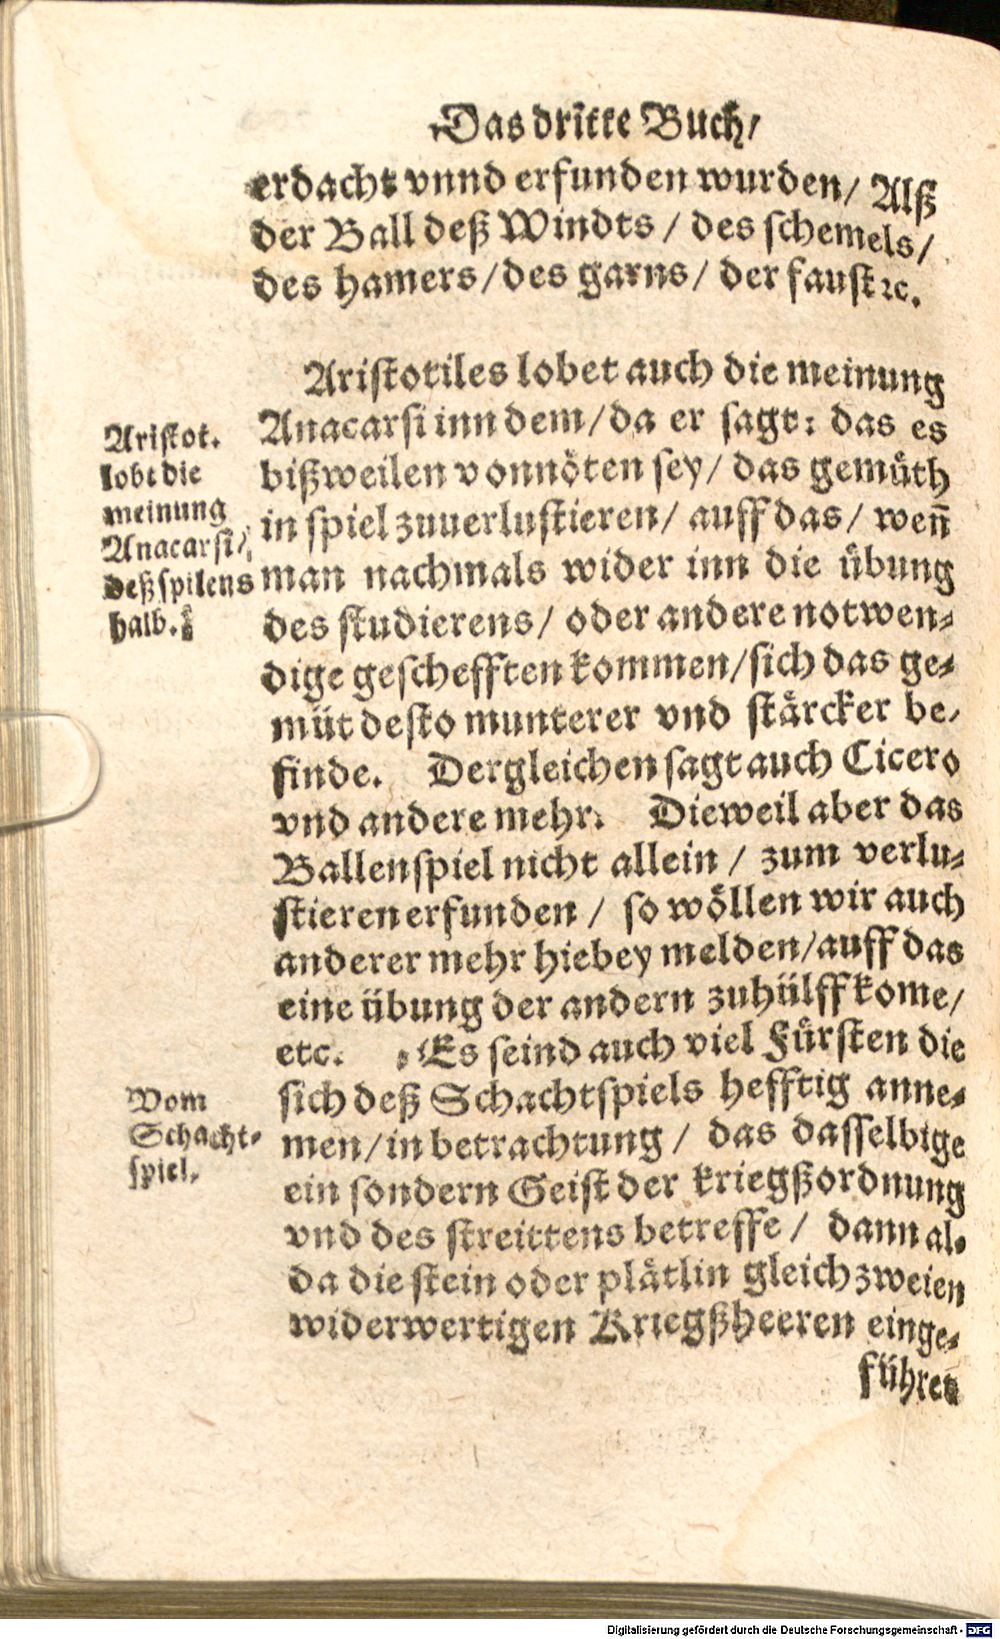 Das dritte Buch/
erdacht vnnd erfunden wurden/ Alß
der Ball deß Windts / des schemels/
des hamers/des garns/ der faust ꝛc.
Aristotiles lobet auch die meinung
Anacarsi inn dem/da er sagt: das es
bißweilen vonnöten sey/ das gemüth
in spiel zuuerlustieren/ auff das/ weñ
man nachmals wider inn die übung
des studierens/ oder andere notwen⸗
dige geschefften kommen/sich das ge⸗
müt desto munterer vnd stärcker be⸗
finde. Dergleichen sagt auch Cicero
vnd andere mehr. Dieweil aber das
Ballenspiel nicht allein / zum verlu⸗
stieren erfunden / so wöllen wir auch
anderer mehr hiebey melden/auff das
eine übung der andern zuhülff kome/
etc. Es seind auch viel Fürsten die
sich deß Schachtspiels hefftig anne⸗
men/in betrachtung / das dasselbige
ein sondern Geist der kriegßordnung
vnd des streittens betreffe / dann al⸗
da die stein oder plätlin gleich zweien
widerwertigen Kriegßheeren einge⸗
führet
Aristot.
lobt die
meinung
Anacarsi/
deß spilens
halb.
Vom
Schacht⸗
spiel.
Digitalisierung gefördert durch die Deutsche Forschungsgemeinschaft - DFG